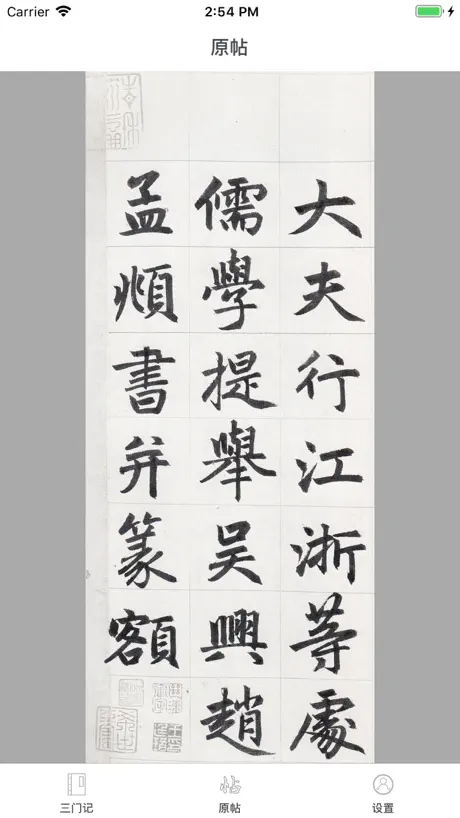 Carrier 2:54 PM
原帖
大夫行江浙等處
儒學提舉吳興趙
孟頫書并篆額
三门记 帖 原帖 设置